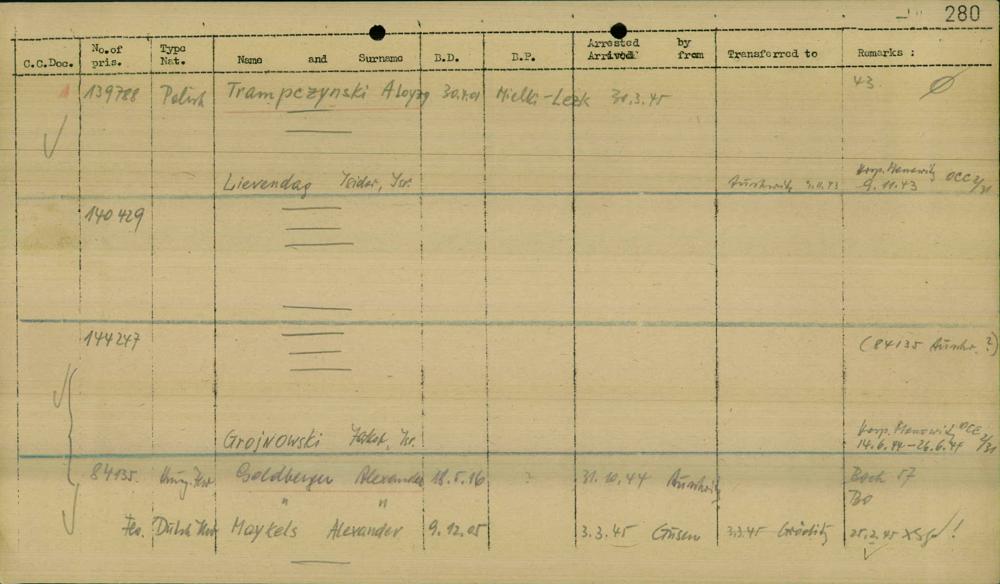 280
C.C.Doc. No.of pris. Type Nat. Name and Surname B.D. B.P. Arrested Arrived by from Transferred to Remarks :
139788 Polish Trampczynski Aloyzy 30.4.01 Mielki-Lezk 30.3.45 43.
Lievendag Isidor, Isr. Auschwitz 9.11.43 Hosp. Monowitz OCC 2/31
9.11.43
140429
144247 (84135 Auschw. ?)
Grojnowski Jakob, Isr. Hosp. Monowitz OCC 2/31
14.6.44-26.6.44
84135 Hung. Isr Goldberger Alexander 18.5.16 ? 31.10.44 Auschwitz Boch 57
" " Bo
Dutch Isr Maykels Alexander 9.12.05 3.3.45 Gusen 3.3.45 Gröditz 25.2.45 !